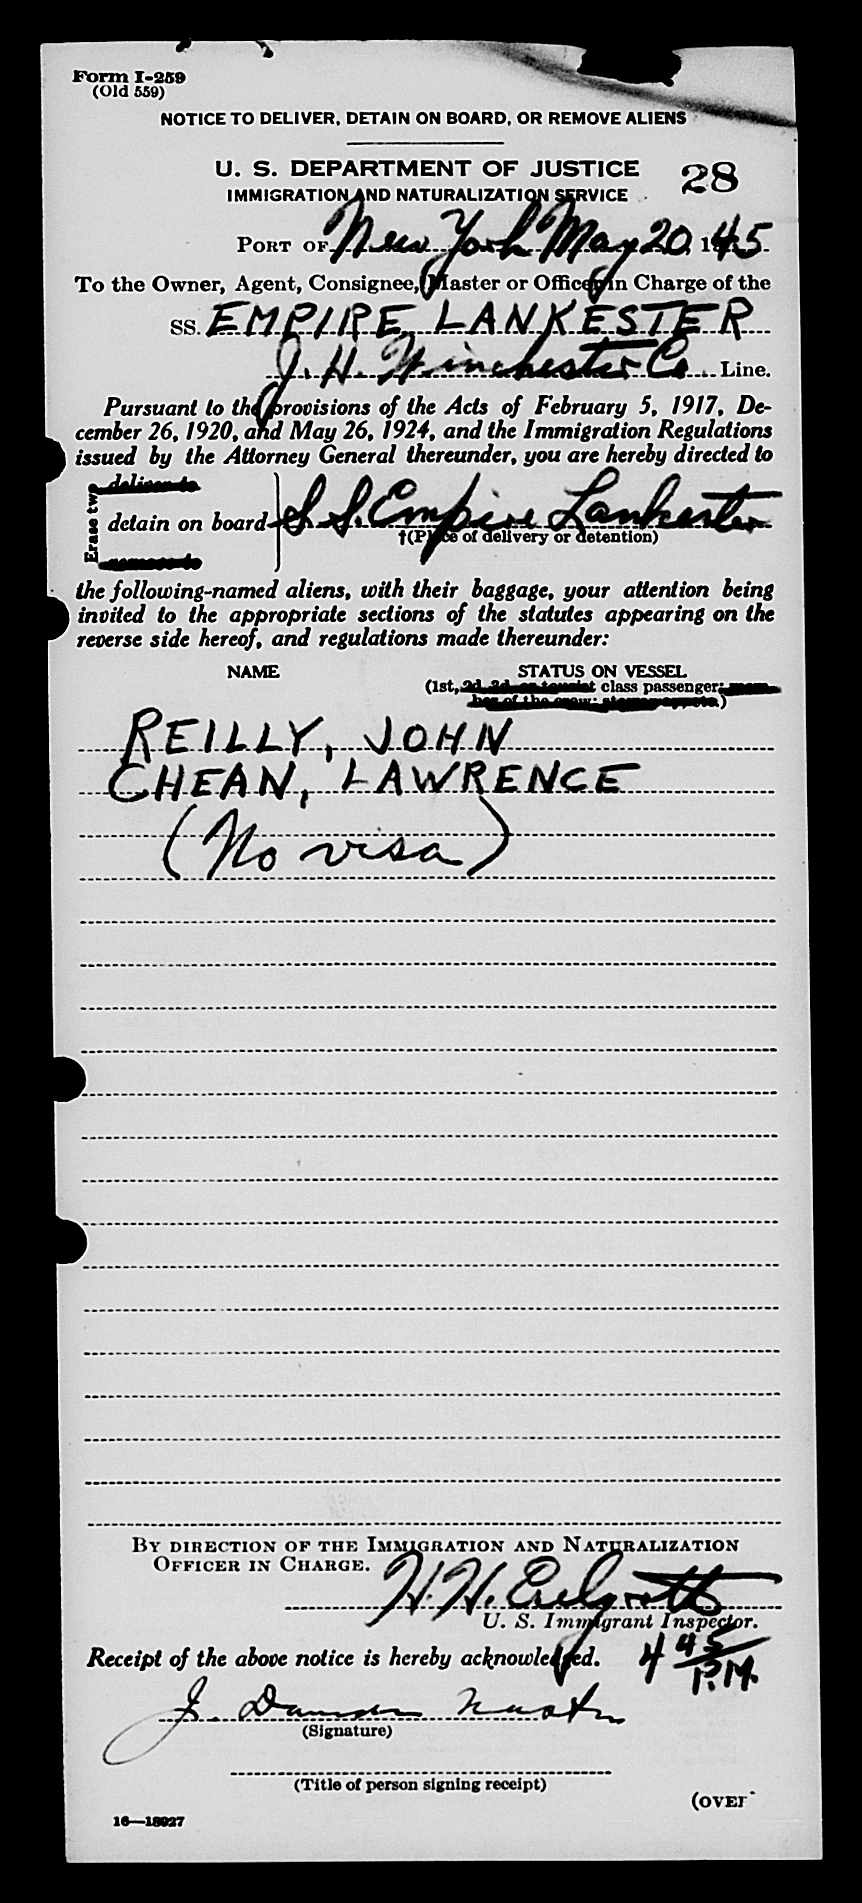 Form I-259
(Old 559)
NOTICE TO DELIVER, DETAIN ON BOARD, OR REMOVE ALIENS
U. S. DEPARTMENT OF JUSTICE
28
IMMIGRATION AND NATURALIZATION SERVICE
PORT OF New York May 20, 1945
To the Owner, Agent, Consignee, Master or Officer in Charge of the
SS. EMPIRE LANKESTER
J. H. Winchester Co. Line.
Pursuant to the provisions of the Acts of February 5, 1917, De-
cember 26, 1920, and May 26, 1924, and the Immigration Regulations
issued by the Attorney General thereunder, you are hereby directed to
Erase two
deliver to
detain on board S S. Empire Lankester
†(Place of delivery or detention)
remove to
the following-named aliens, with their baggage, your attention being
invited to the appropriate sections of the statutes appearing on the
reverse side hereof, and regulations made thereunder:
NAME STATUS ON VESSEL
(1st, 2d, 3d, or tourist class passenger; mem-
ber of the crew; stowaway, etc.)
REILLY, JOHN
CHEAN, LAWRENCE
(No visa)
BY DIRECTION OF THE IMMIGRATION AND NATURALIZATION
OFFICER IN CHARGE.
H. H.
U. S. Immigrant Inspector.
Receipt of the above notice is hereby acknowledged. 4 45 P.M.
J.
(Signature)
(Title of person signing receipt)
(OVER
16—18927